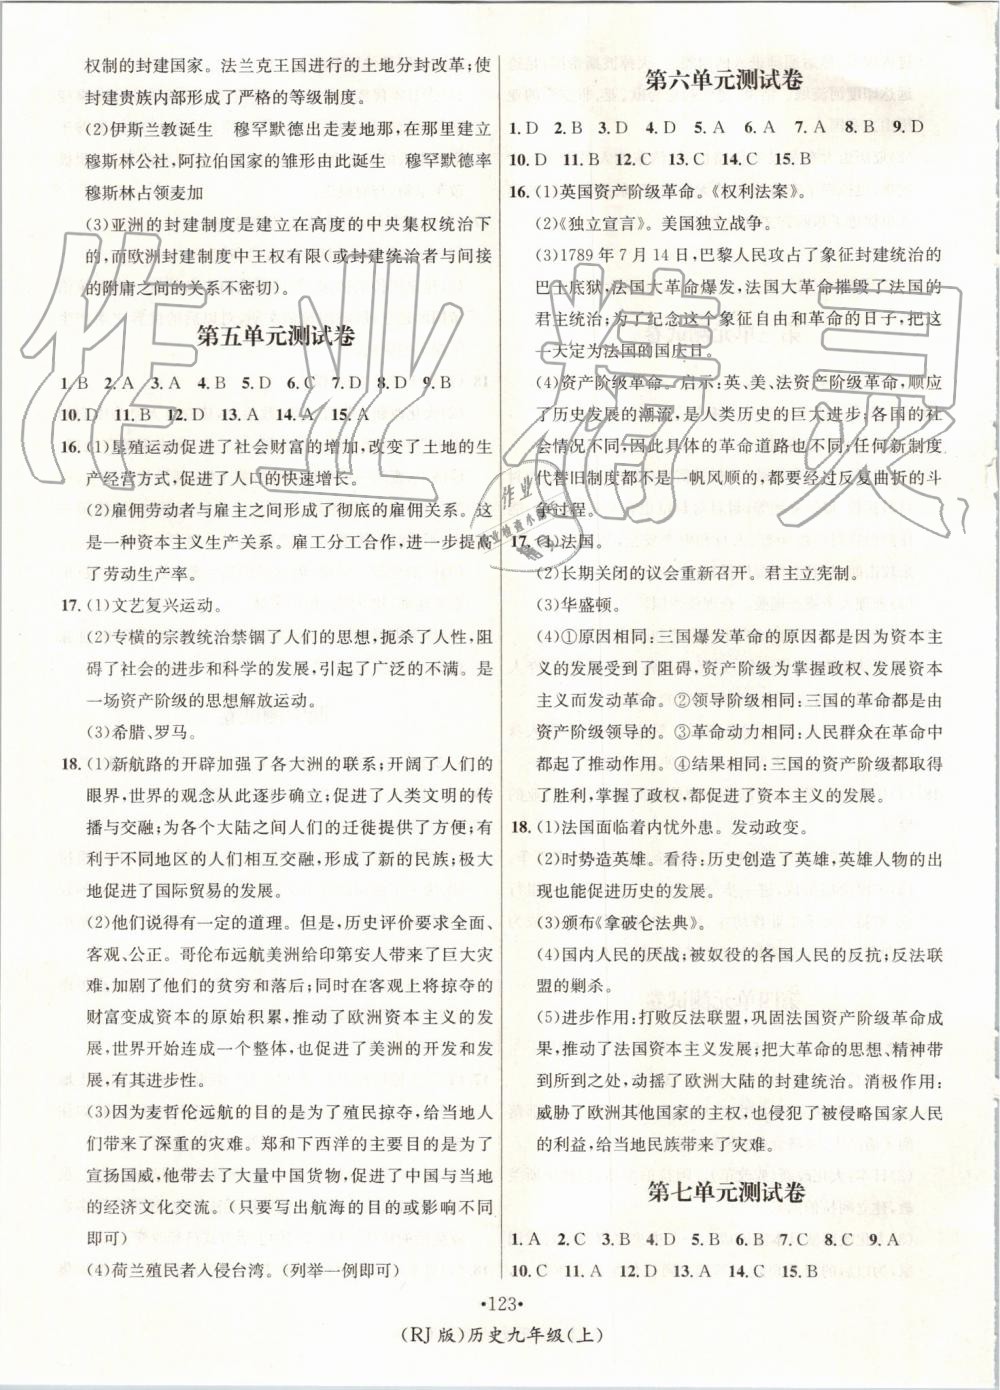 权制的封建国家。法兰克王国进行的土地分封改革;使
封建贵族内部形成了严格的等级制度。
(2)伊斯兰教诞生　穆罕默德出走麦地那,在那里建立
穆斯林公社,阿拉伯国家的雏形由此诞生　穆罕默德率
穆斯林占领麦加
(3)亚洲的封建制度是建立在高度的中央集权统治下
的,而欧洲封建制度中王权有限(或封建统治者与间接
的附庸之间的关系不密切)。
第五单元测试卷
1. B　2. A　3. A　4. B　5. D　6. C　7. D　8. D　9. B
10. D　11. B　12. D　13. A　14. A　15. A
16. (1)垦殖运动促进了社会财富的增加,改变了土地的生
产经营方式,促进了人口的快速增长。
(2)雇佣劳动者与雇主之间形成了彻底的雇佣关系。
这是一种资本主义生产关系。雇工分工合作,进一步提高
了劳动生产率。
17. (1)文艺复兴运动。
(2)专横的宗教统治禁锢了人们的思想,扼杀了人性,阻
碍了社会的进步和科学的发展,引起了广泛的不满。是
一场资产阶级的思想解放运动。
(3)希腊、罗马。
18. (1)新航路的开辟加强了各大洲的联系;开阔了人们的
眼界,世界的观念从此逐步确立;促进了人类文明的传
播与交融;为各个大陆之间人们的迁徙提供了方便;有
利于不同地区的人们相互交融,形成了新的民族;极大
地促进了国际贸易的发展。
(2)他们说得有一定的道理。但是,历史评价要求全面、
客观、公正。哥伦布远航美洲给印第安人带来了巨大灾
难,加剧了他们的贫穷和落后;同时在客观上将掠夺的
财富变成资本的原始积累,推动了欧洲资本主义的发
展,世界开始连成一个整体,也促进了美洲的开发和发
展,有其进步性。
(3)因为麦哲伦远航的目的是为了殖民掠夺,给当地人
们带来了深重的灾难。郑和下西洋的主要目的是为了
宣扬国威,他带去了大量中国货物,促进了中国与当地
的经济文化交流。(只要写出航海的目的或影响不同
即可)
(4)荷兰殖民者入侵台湾。(列举一例即可)
第六单元测试卷
1. D　2. B　3. D　4. D　5. A　6. A　7. A　8. B　9. D
10. D　11. B　12. C　13. C　14. C　15. B
16. (1)英国资产阶级革命。《权利法案》。
(2)《独立宣言》。美国独立战争。
(3)1789 年 7 月 14 日,巴黎人民攻占了象征封建统治的
巴士底狱,法国大革命爆发,法国大革命摧毁了法国的
君主统治;为了纪念这个象征自由和革命的日子,把这
一天定为法国的国庆日。
(4)资产阶级革命。启示:英、美、法资产阶级革命,顺应
了历史发展的潮流,是人类历史的巨大进步;各国的社
会情况不同,因此具体的革命道路也不同;任何新制度
代替旧制度都不是一帆风顺的,都要经过反复曲折的斗
争过程。
17. (1)法国。
(2)长期关闭的议会重新召开。君主立宪制。
(3)华盛顿。
(4)①原因相同:三国爆发革命的原因都是因为资本主
义的发展受到了阻碍,资产阶级为掌握政权、发展资本
主义而发动革命。②领导阶级相同:三国的革命都是由
资产阶级领导的。③革命动力相同:人民群众在革命中
都起了推动作用。④结果相同:三国的资产阶级都取得
了胜利,掌握了政权,都促进了资本主义的发展。
18. (1)法国面临着内忧外患。发动政变。
(2)时势造英雄。看待:历史创造了英雄,英雄人物的出
现也能促进历史的发展。
(3)颁布《拿破仑法典》。
(4)国内人民的厌战;被奴役的各国人民的反抗;反法联
盟的剿杀。
(5)进步作用:打败反法联盟,巩固法国资产阶级革命成
果,推动了法国资本主义发展;把大革命的思想、精神带
到所到之处,动摇了欧洲大陆的封建统治。消极作用:
威胁了欧洲其他国家的主权,也侵犯了被侵略国家人民
的利益;给当地民族带来了灾难。
第七单元测试卷
1. A　2. C　3. B　4. D　5. B　6. B　7. C　8. C　9. A
10. C　11. A　12. D　13. A　14. C　15. B
·123·
(RJ 版)历史九年级(上)
作业精灵